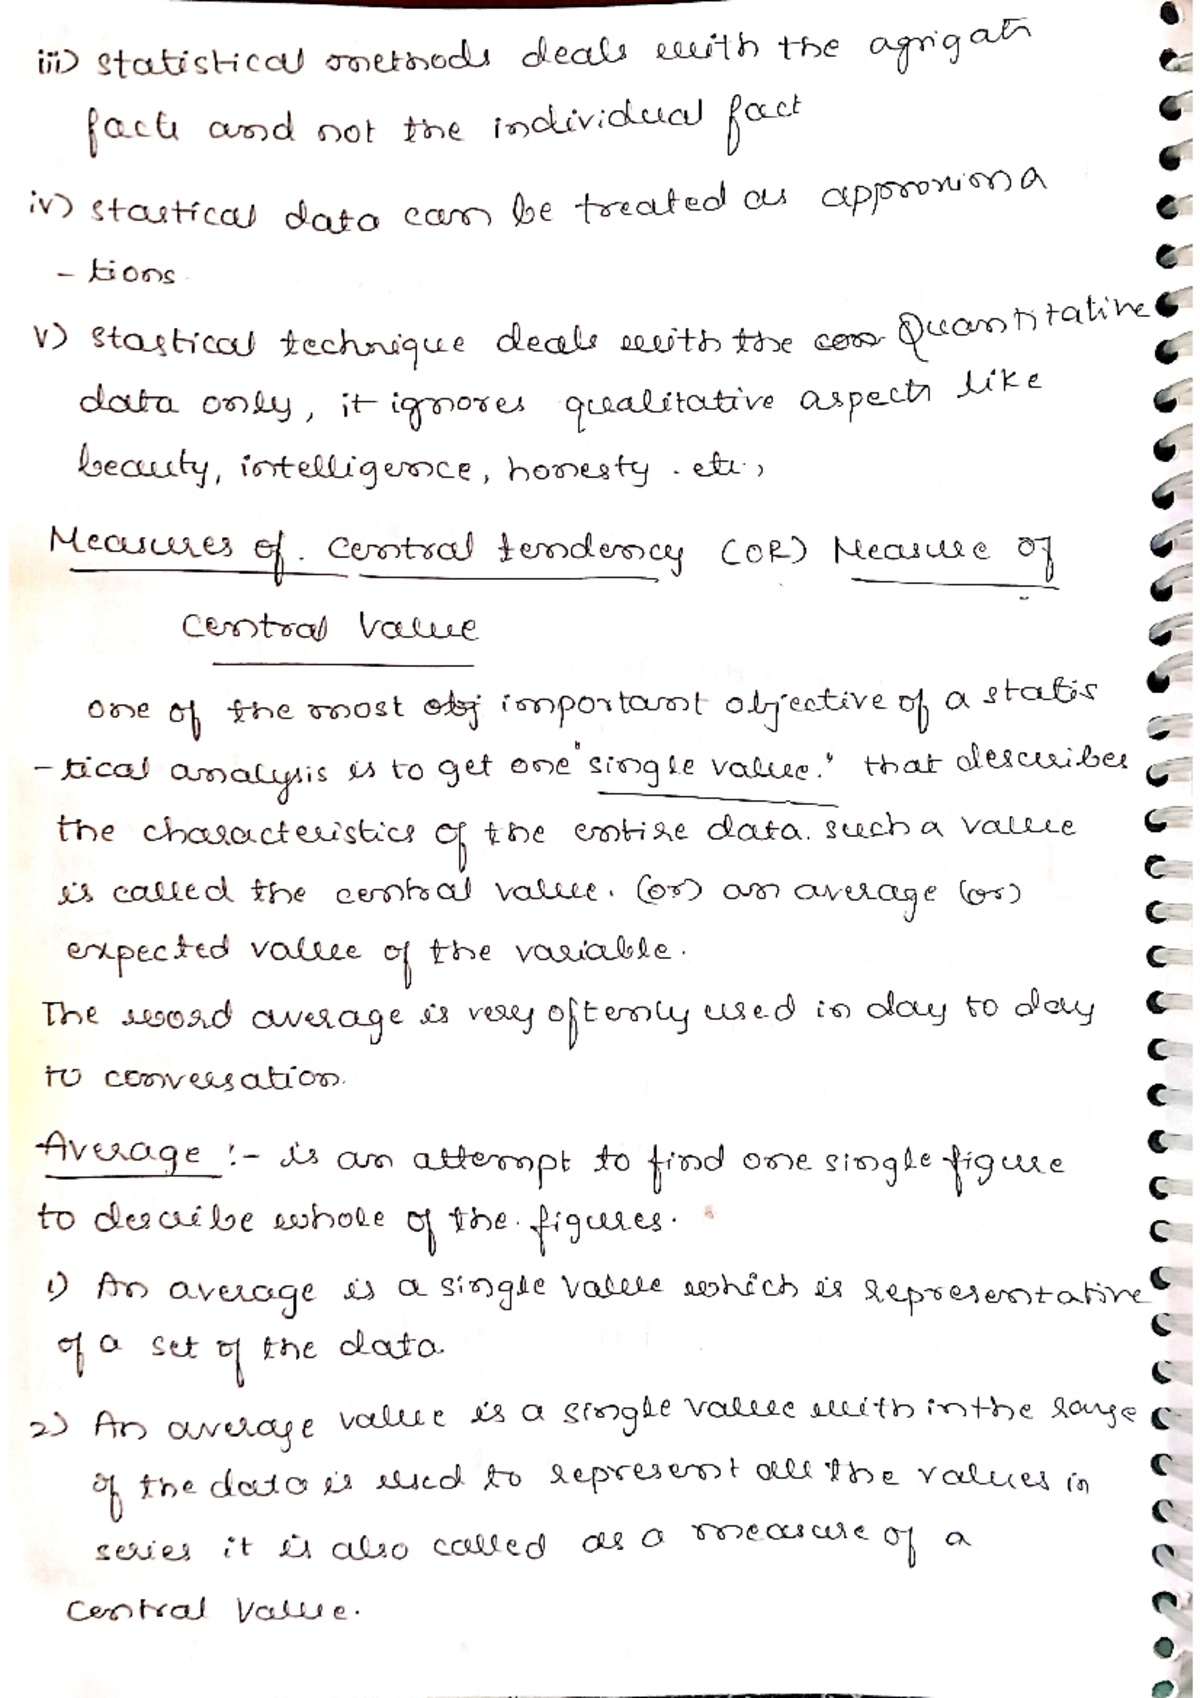 iii) statistical methods deals with the agrigati
facts and not the individual fact
iv) stastical data can be treated as approxima
- tions.
v) stastical technique deals with the con Quantitative
data only, it ignores qualitative aspects like
beauty, intelligence, honesty . etc.,
Measures of. central tendency (OR) Measure of
central value
one of the most obj important objective of a statis
- tical analysis is to get one "single value." that describes
the characteristics of the entire data. such a value
is called the central value. (or) an average (or)
expected value of the variable.
The word average is very oftenly used in day to day
to conversation.
Average :- is an attempt to find one single figure
to describe whole of the. figures.
1) An average is a single value which is representative
of a set of the data.
2) An average value is a single value with in the range
of the data is used to represent all the values in
series it is also called as a measure of a
central value.